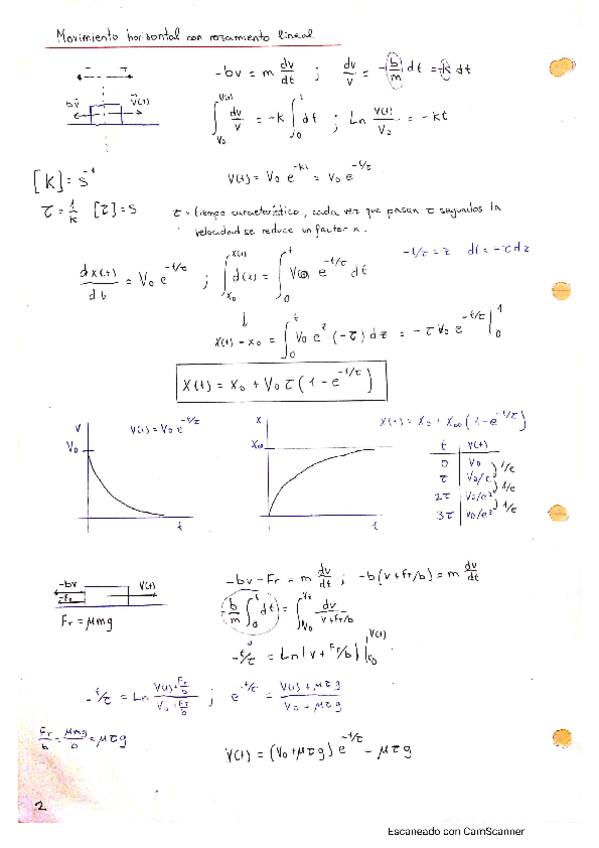 Movimiento horizontal con rozamiento lineal
-bv = m dv/dt ; dv/v = -(b/m) dt = -k dt
bv V(t)
∫_{V0}^{V(t)} dv/v = -k ∫_0^t dt ; Ln V(t)/V0 = -kt
[K] = s^-1
V(t) = V0 e^{-kt} = V0 e^{-t/τ}
τ = 1/k [τ] = s
τ = tiempo característico, cada vez que pasan τ segundos la
velocidad se reduce un factor
-t/τ = z dt = -τdz
dx(t)/dt = V0 e^{-t/τ} ; ∫_{x0}^{x(t)} d(x) = ∫_0^t V(0) e^{-t/τ} dt
↓
X(t) - x0 = ∫_0^t V0 e^z (-τ) dz = -τ V0 e^{-t/τ} |_0^t
X(t) = X0 + V0 τ (1 - e^{-t/τ})
V V(t) = V0 e^{-t/τ}
V0
t
X
X∞
t
X(t) = X0 + X∞ (1 - e^{-t/τ})
t V(t)
0 V0
1/e
τ V0/e
1/e
2τ V0/e²
1/e
3τ V0/e³
-bv V(t)
-Fr
Fr = μmg
-bv - Fr = m dv/dt ; -b(v + Fr/b) = m dv/dt
-b/m ∫_0^t dt = ∫_{V0}^{Vt} dv/(v + Fr/b)
-t/τ = Ln |v + Fr/b| |_{V0}^{V(t)}
-t/τ = Ln (V(t) + Fr/b)/(V0 + Fr/b) ; e^{-t/τ} = (V(t) + μτg)/(V0 + μτg)
Fr/b = μmg/b = μτg
V(t) = (V0 + μτg) e^{-t/τ} - μτg
2
Escaneado con CamScanner